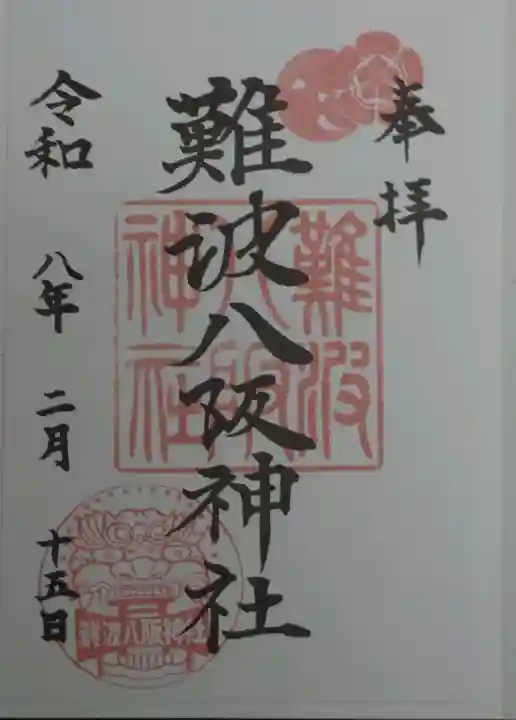 奉拝
難波八阪神社
難波
八阪
神社
令和 八年 二月 十五日
難波八阪神社